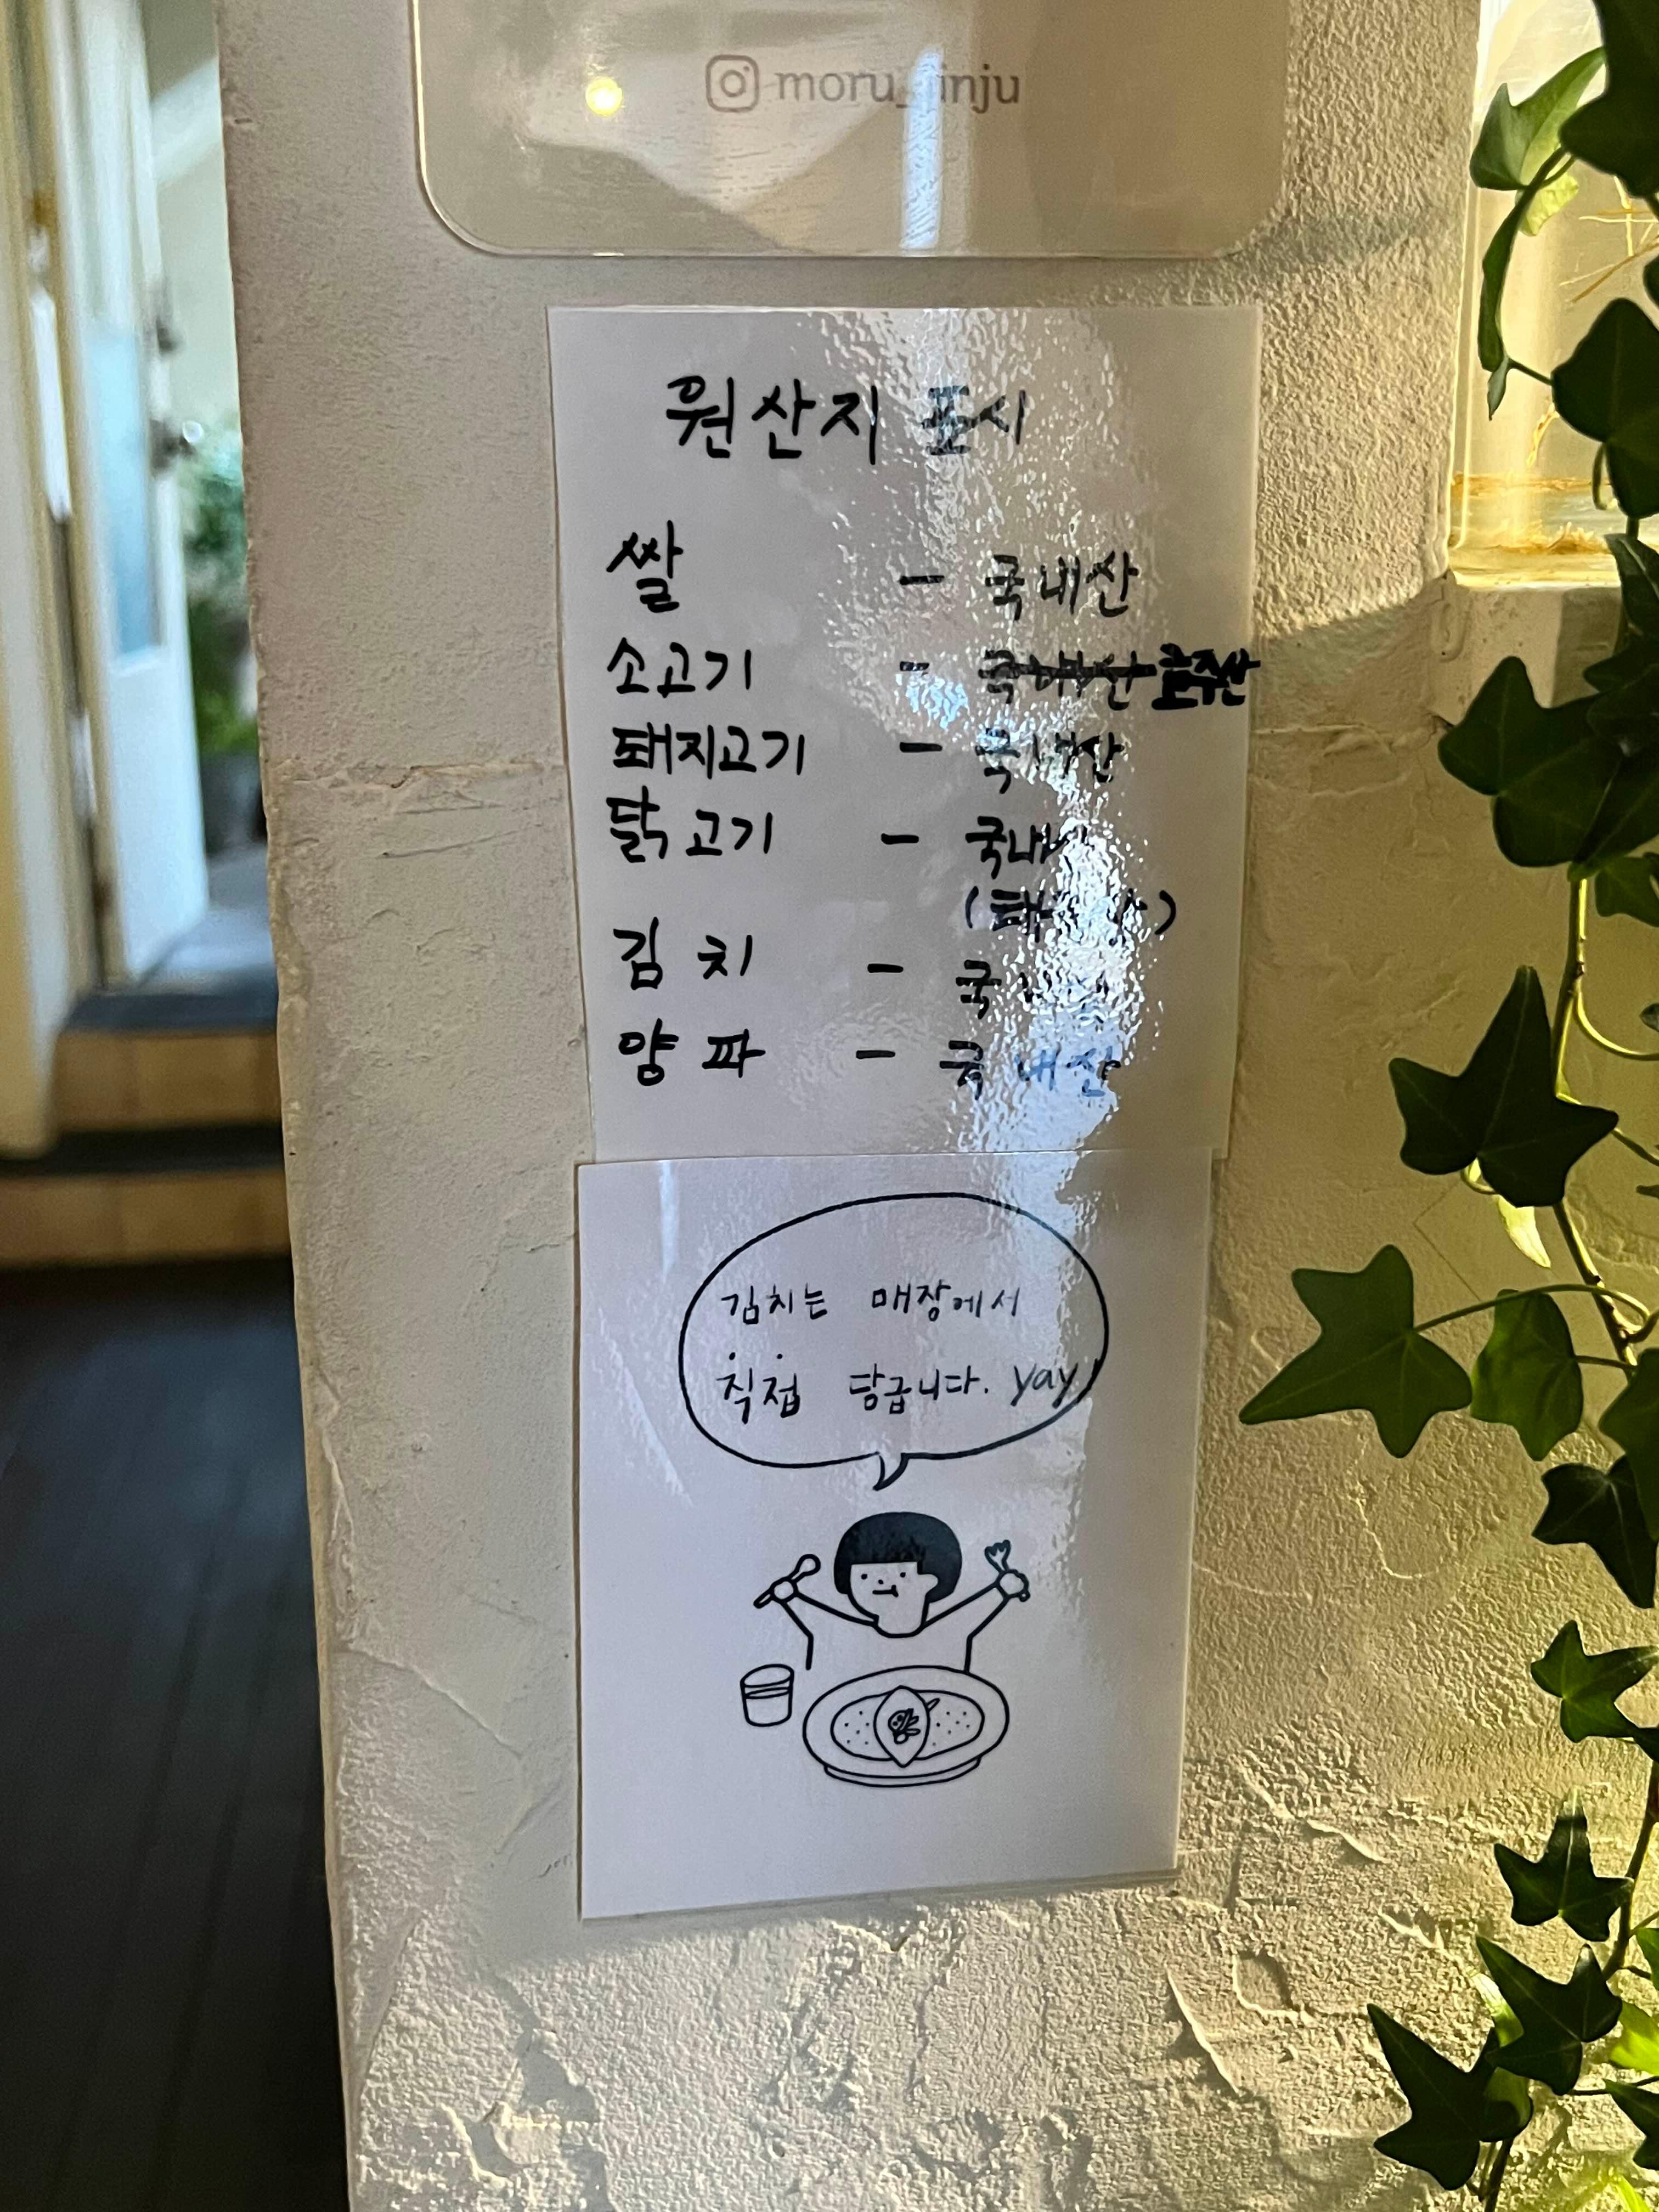 moru_jinju
원산지 표시
쌀 - 국내산
소고기 - 국내산
돼지고기 - 국내산
닭고기 - 국내산
김치 - 국내산
양파 - 국내산
김치는 매장에서
직접 담급니다. yay